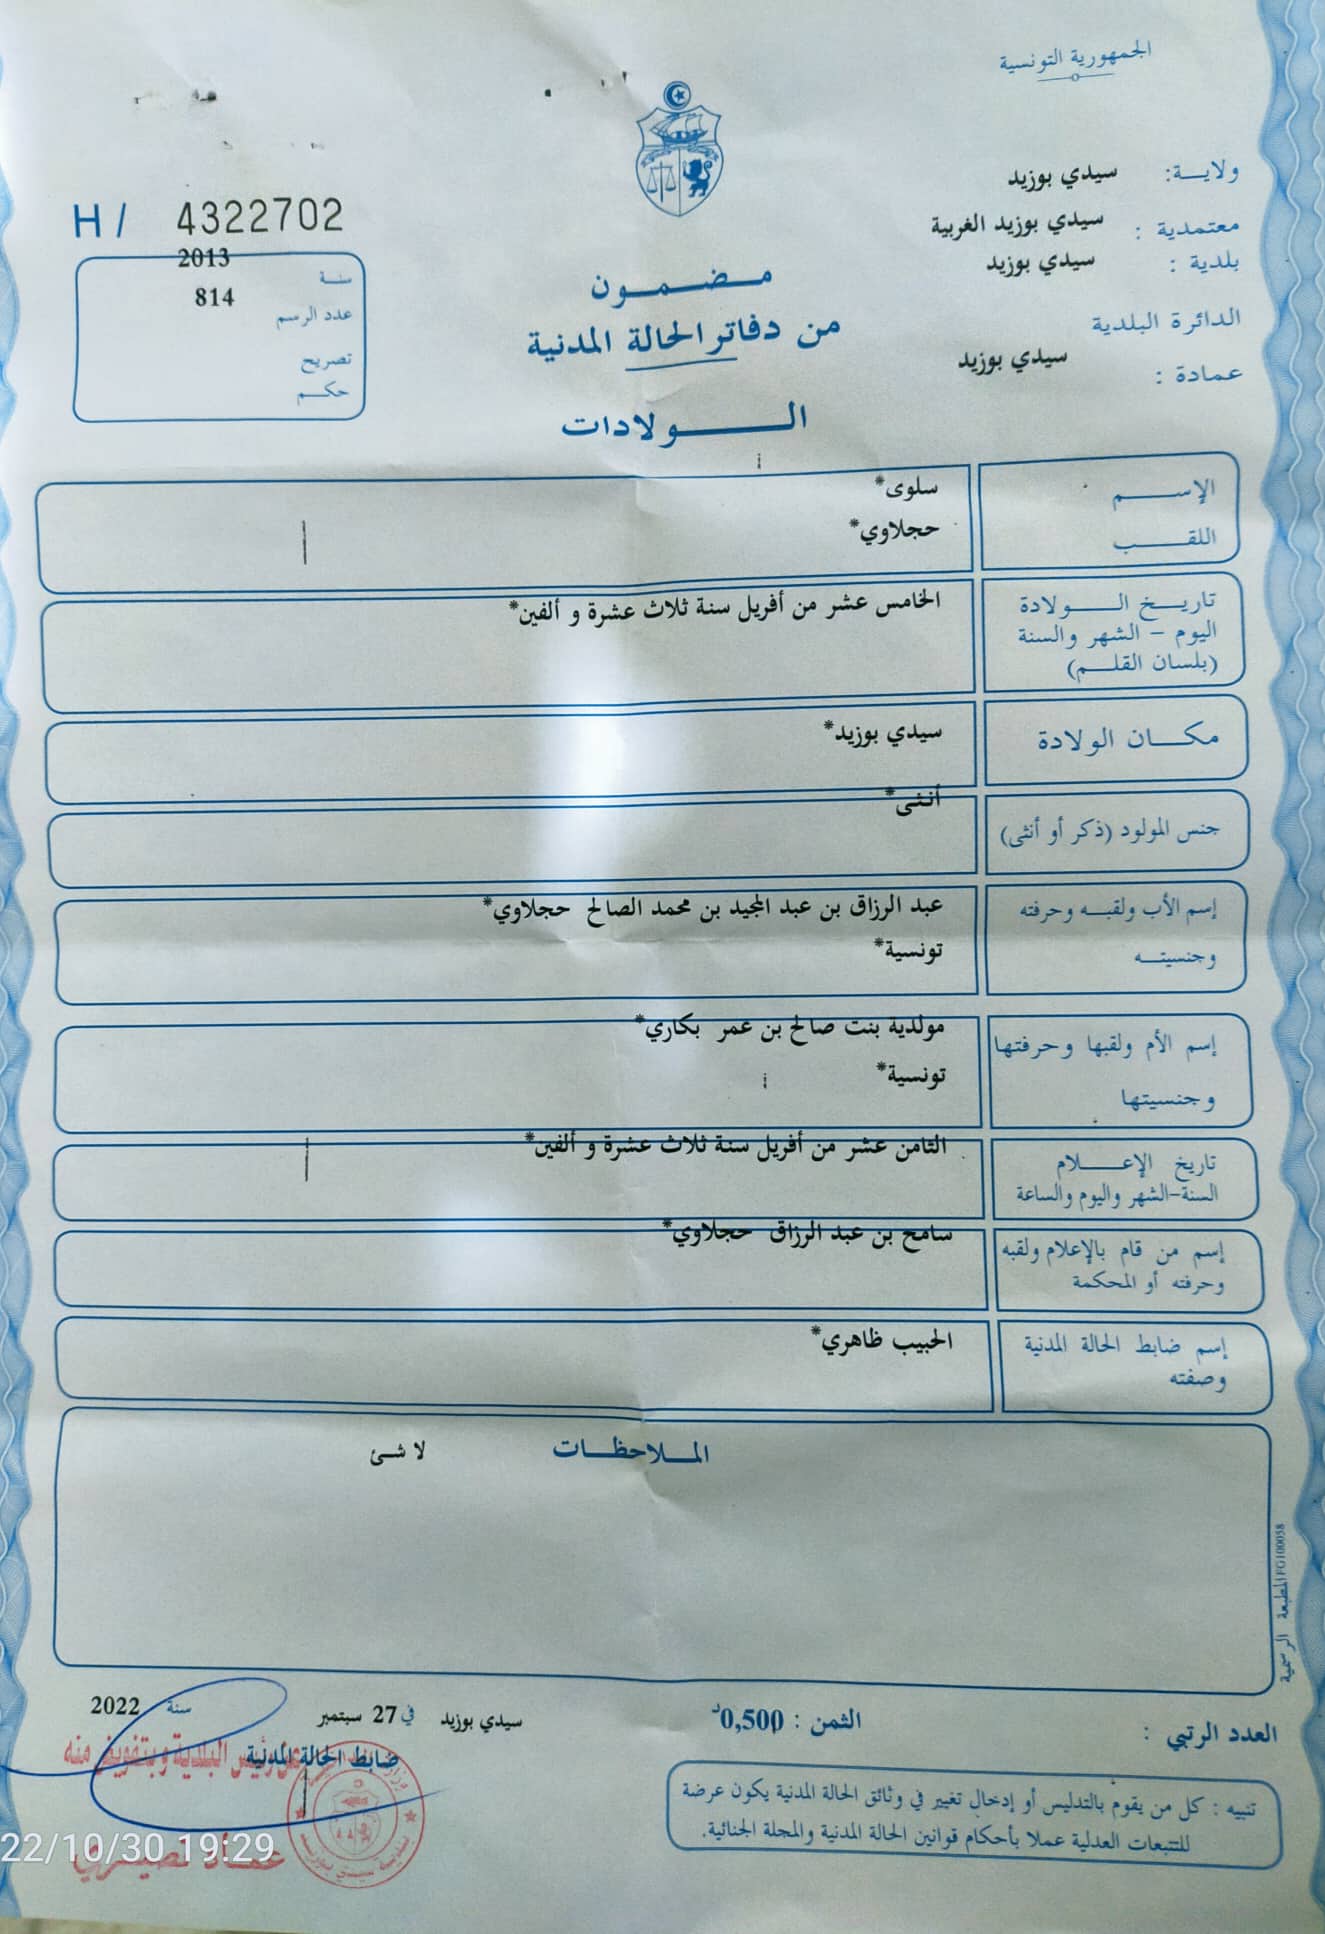 الجمهورية التونسية
ولايـــة: سيدي بوزيد
معتمدية : سيدي بوزيد الغربية
بلدية : سيدي بوزيد
الدائرة البلدية
عمادة : سيدي بوزيد
H / 4322702
سنة 2013
عدد الرسم 814
تصريح
حكم
مضمون
من دفاتر الحالة المدنية
الولادات
الإسم سلوى*
اللقب حجلاوي*
تاريخ الولادة الخامس عشر من أفريل سنة ثلاث عشرة و ألفين*
اليوم - الشهر والسنة
(بلسان القلم)
مكان الولادة سيدي بوزيد*
جنس المولود (ذكر أو أنثى) أنثى*
إسم الأب ولقبه وحرفته عبد الرزاق بن عبد المجيد بن محمد الصالح حجلاوي*
وجنسيته تونسية*
إسم الأم ولقبها وحرفتها مولدية بنت صالح بن عمر بكاري*
وجنسيتها تونسية*
تاريخ الإعلام الثامن عشر من أفريل سنة ثلاث عشرة و ألفين*
السنة-الشهر واليوم والساعة
إسم من قام بالإعلام ولقبه سامح بن عبد الرزاق حجلاوي*
وحرفته أو المحكمة
إسم ضابط الحالة المدنية الحبيب ظاهري*
وصفته
الملاحظات لا شئ
المطبعة الرسمية FG100058
العدد الرتبي : الثمن : 0,500د
سيدي بوزيد في 27 سبتمبر سنة 2022
ضابط الحالة المدنية
عن رئيس البلدية وبتفويض منه
تنبيه : كل من يقوم بالتدليس أو إدخال تغيير في وثائق الحالة المدنية يكون عرضة
للتتبعات العدلية عملا بأحكام قوانين الحالة المدنية والمجلة الجنائية.
عماد نصيري
22/10/30 19:29